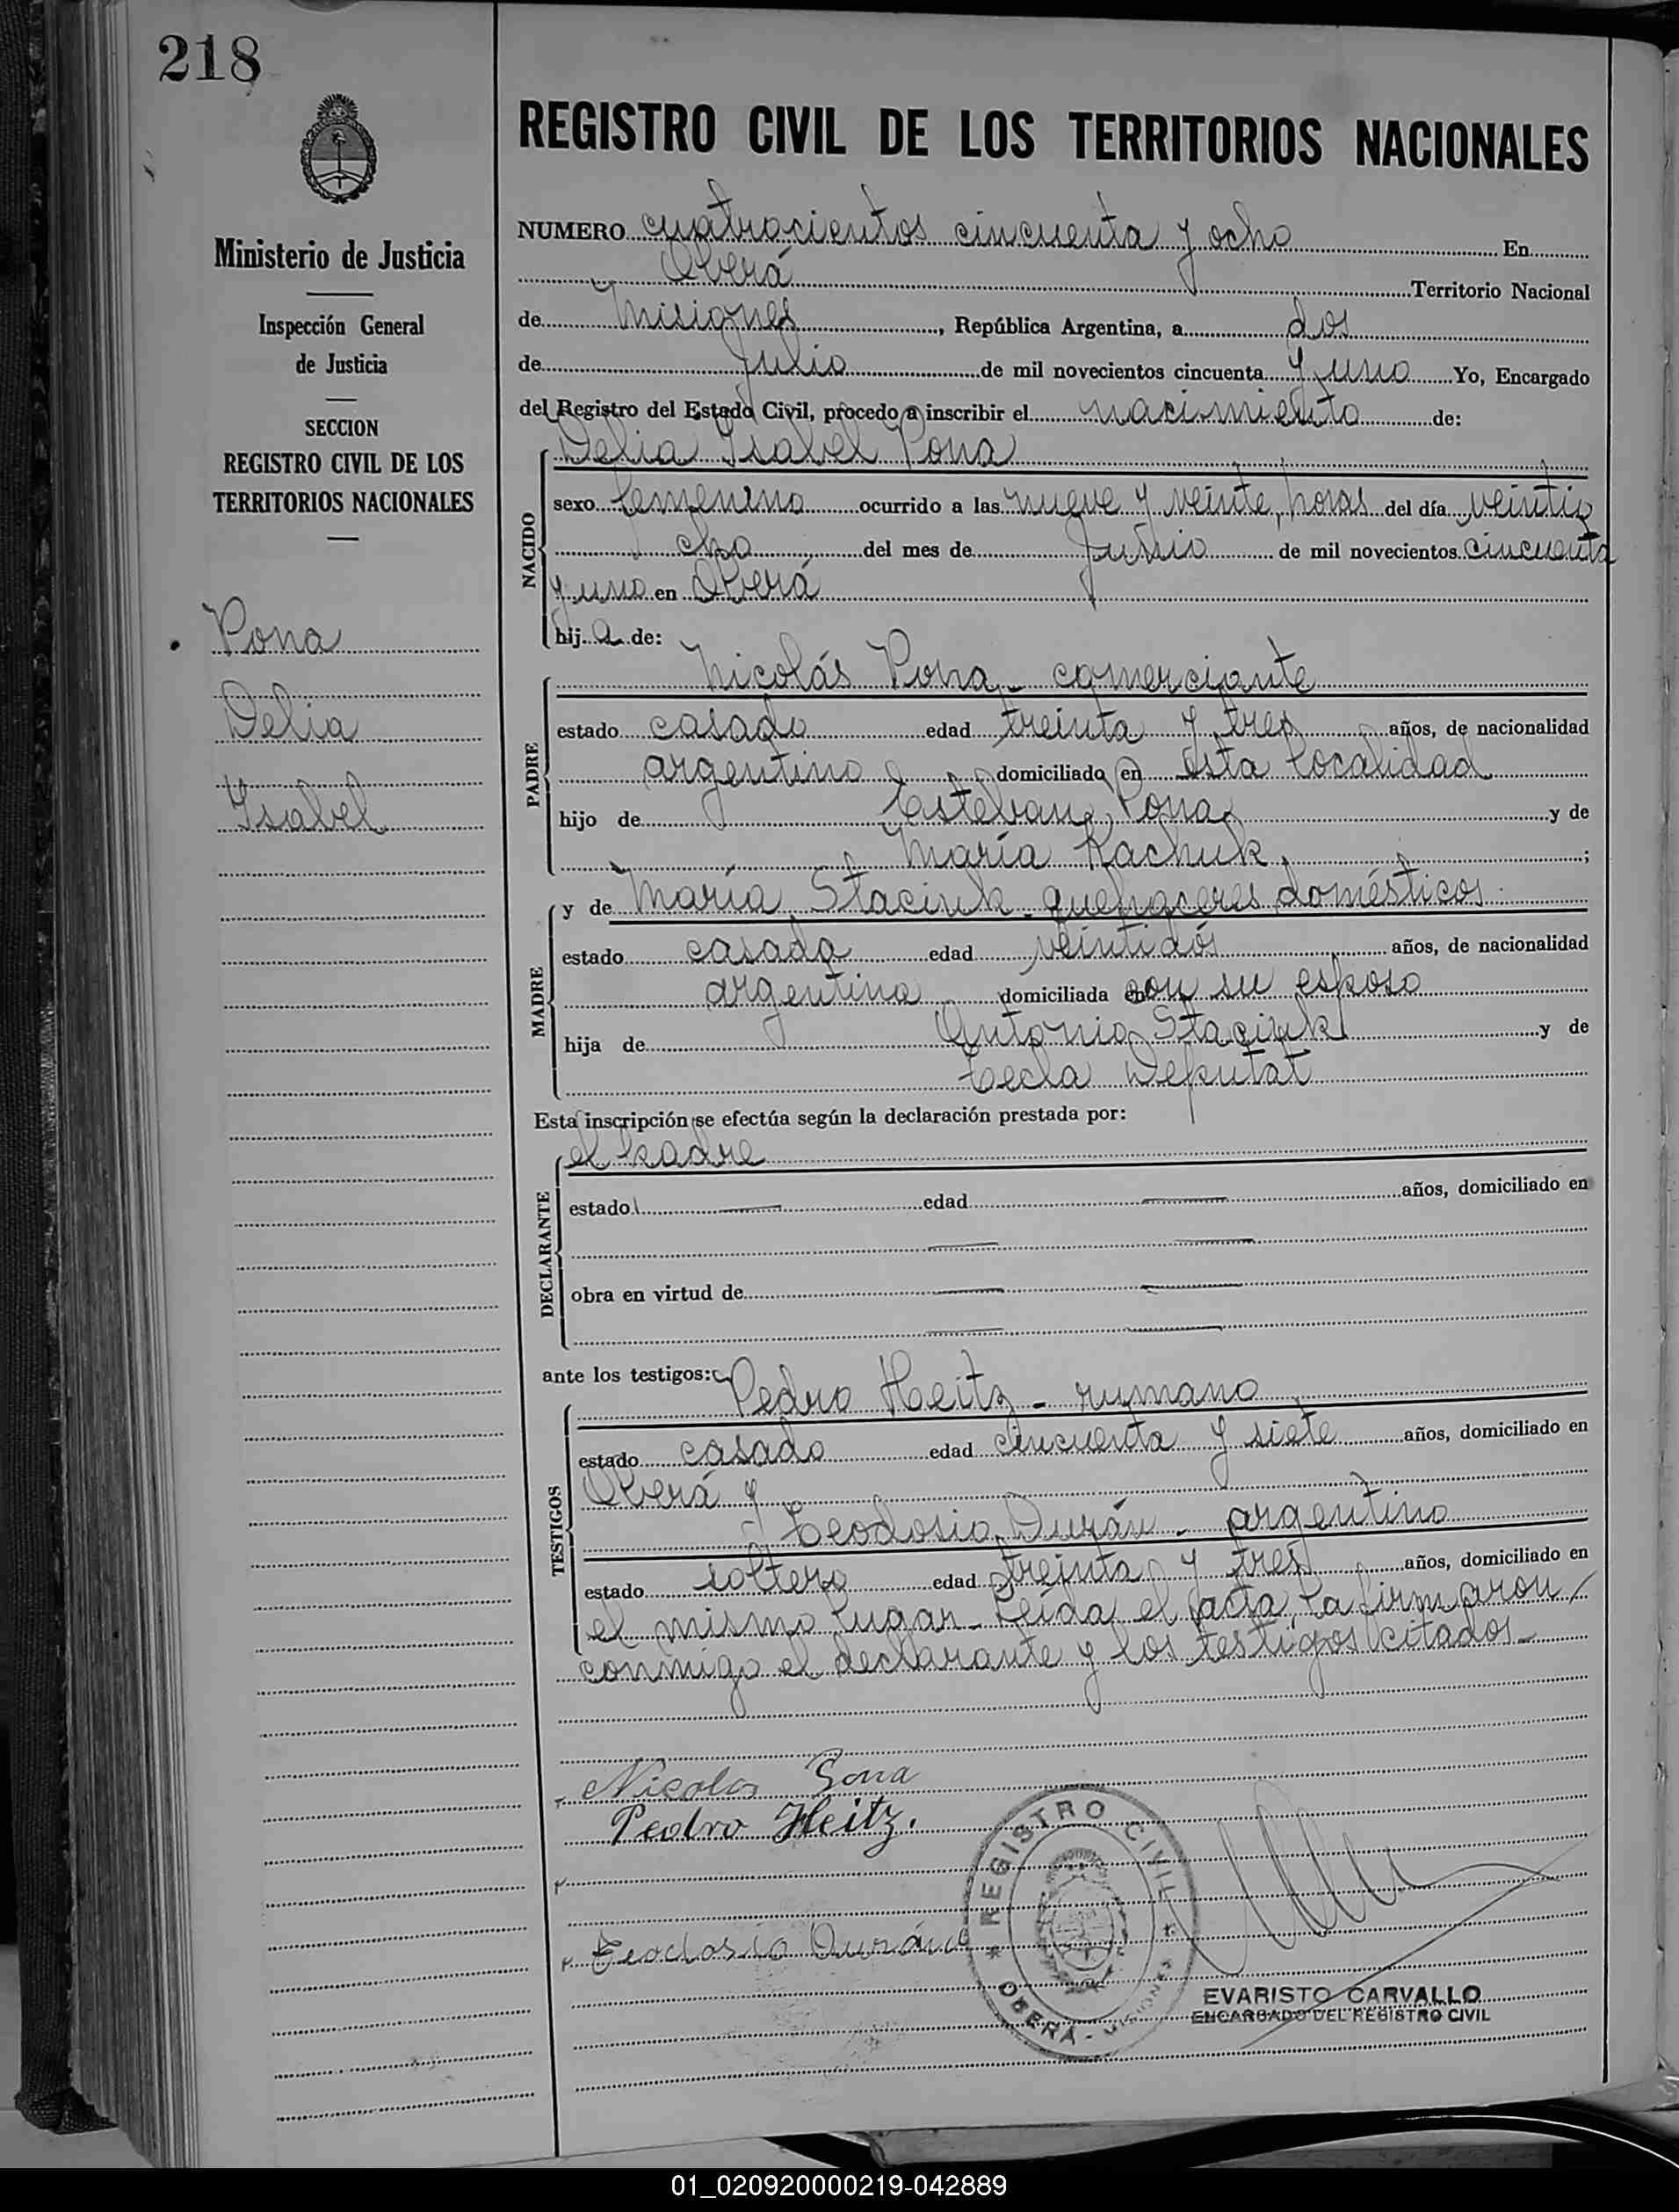 218
Ministerio de Justicia
Inspección General
de Justicia
SECCION
REGISTRO CIVIL DE LOS
TERRITORIOS NACIONALES
Pona
Delia
Isabel
REGISTRO CIVIL DE LOS TERRITORIOS NACIONALES
NUMERO cuatrocientos cincuenta y ocho En
Oberá Territorio Nacional
de Misiones, República Argentina, a dos
de Julio de mil novecientos cincuenta y uno Yo, Encargado
del Registro del Estado Civil, procedo a inscribir el nacimiento de:
NACIDO
Delia Isabel Pona
sexo femenino ocurrido a las nueve y veinte horas del día veintio
cho del mes de Junio de mil novecientos cincuenta
y uno en Oberá
hij a de:
PADRE
Nicolás Pona - comerciante
estado casado edad treinta y tres años, de nacionalidad
argentino domiciliado en esta localidad
hijo de Esteban Pona y de
María Kachuk ;
MADRE
y de María Staciuk - quehaceres domésticos
estado casada edad veintidós años, de nacionalidad
argentina domiciliada en con su esposo
hija de Antonio Staciuk y de
Tecla Deputat
Esta inscripción se efectúa según la declaración prestada por:
DECLARANTE
el padre
estado edad años, domiciliado en
obra en virtud de
ante los testigos:
TESTIGOS
Pedro Heitz - rumano
estado casado edad cincuenta y siete años, domiciliado en
Oberá y
Teodosio Durán - argentino
estado soltero edad treinta y tres años, domiciliado en
el mismo lugar - Leída el acta, la firmaron
conmigo el declarante y los testigos citados -
Nicolas Pona
Pedro Heitz.
Teodosio Durán
REGISTRO CIVIL
OBERÁ - MISIONES
EVARISTO CARVALLO
ENCARGADO DEL REGISTRO CIVIL
01_020920000219-042889